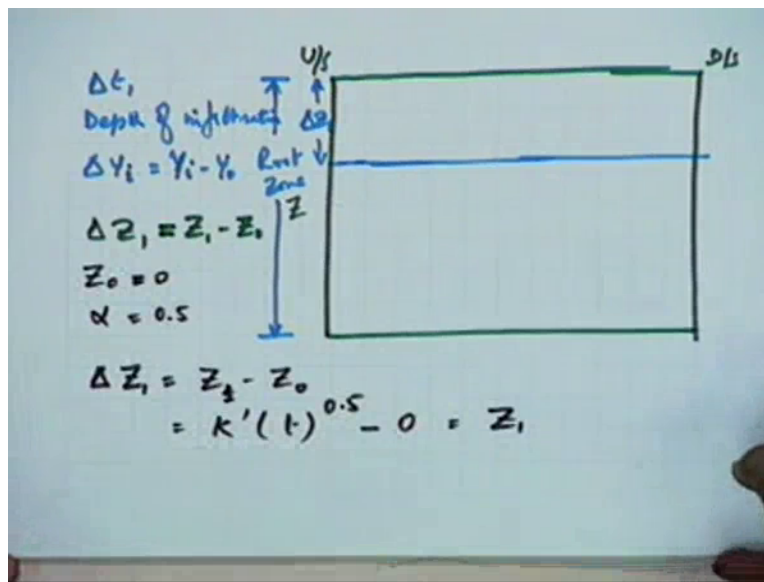 U/S D/S
Δt,
Depth of infiltration ΔZ,
ΔYi = Yi - Y0 Root
Zone
Z
ΔZ1 = Z1 - Z0
Z0 = 0
α = 0.5
ΔZ1 = Z1 - Z0
= K'(t)^0.5 - 0 = Z1